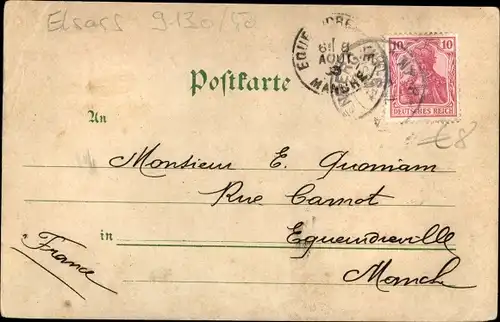 Elsass 9-130/50
EQUEURDRE
6 8
AOUT
MANCHE
10 10
DEUTSCHES REICH
Postkarte
€8
An
Monsieur E. Quoniam
Rue Carnot
in Equeurdreville
France
Manche